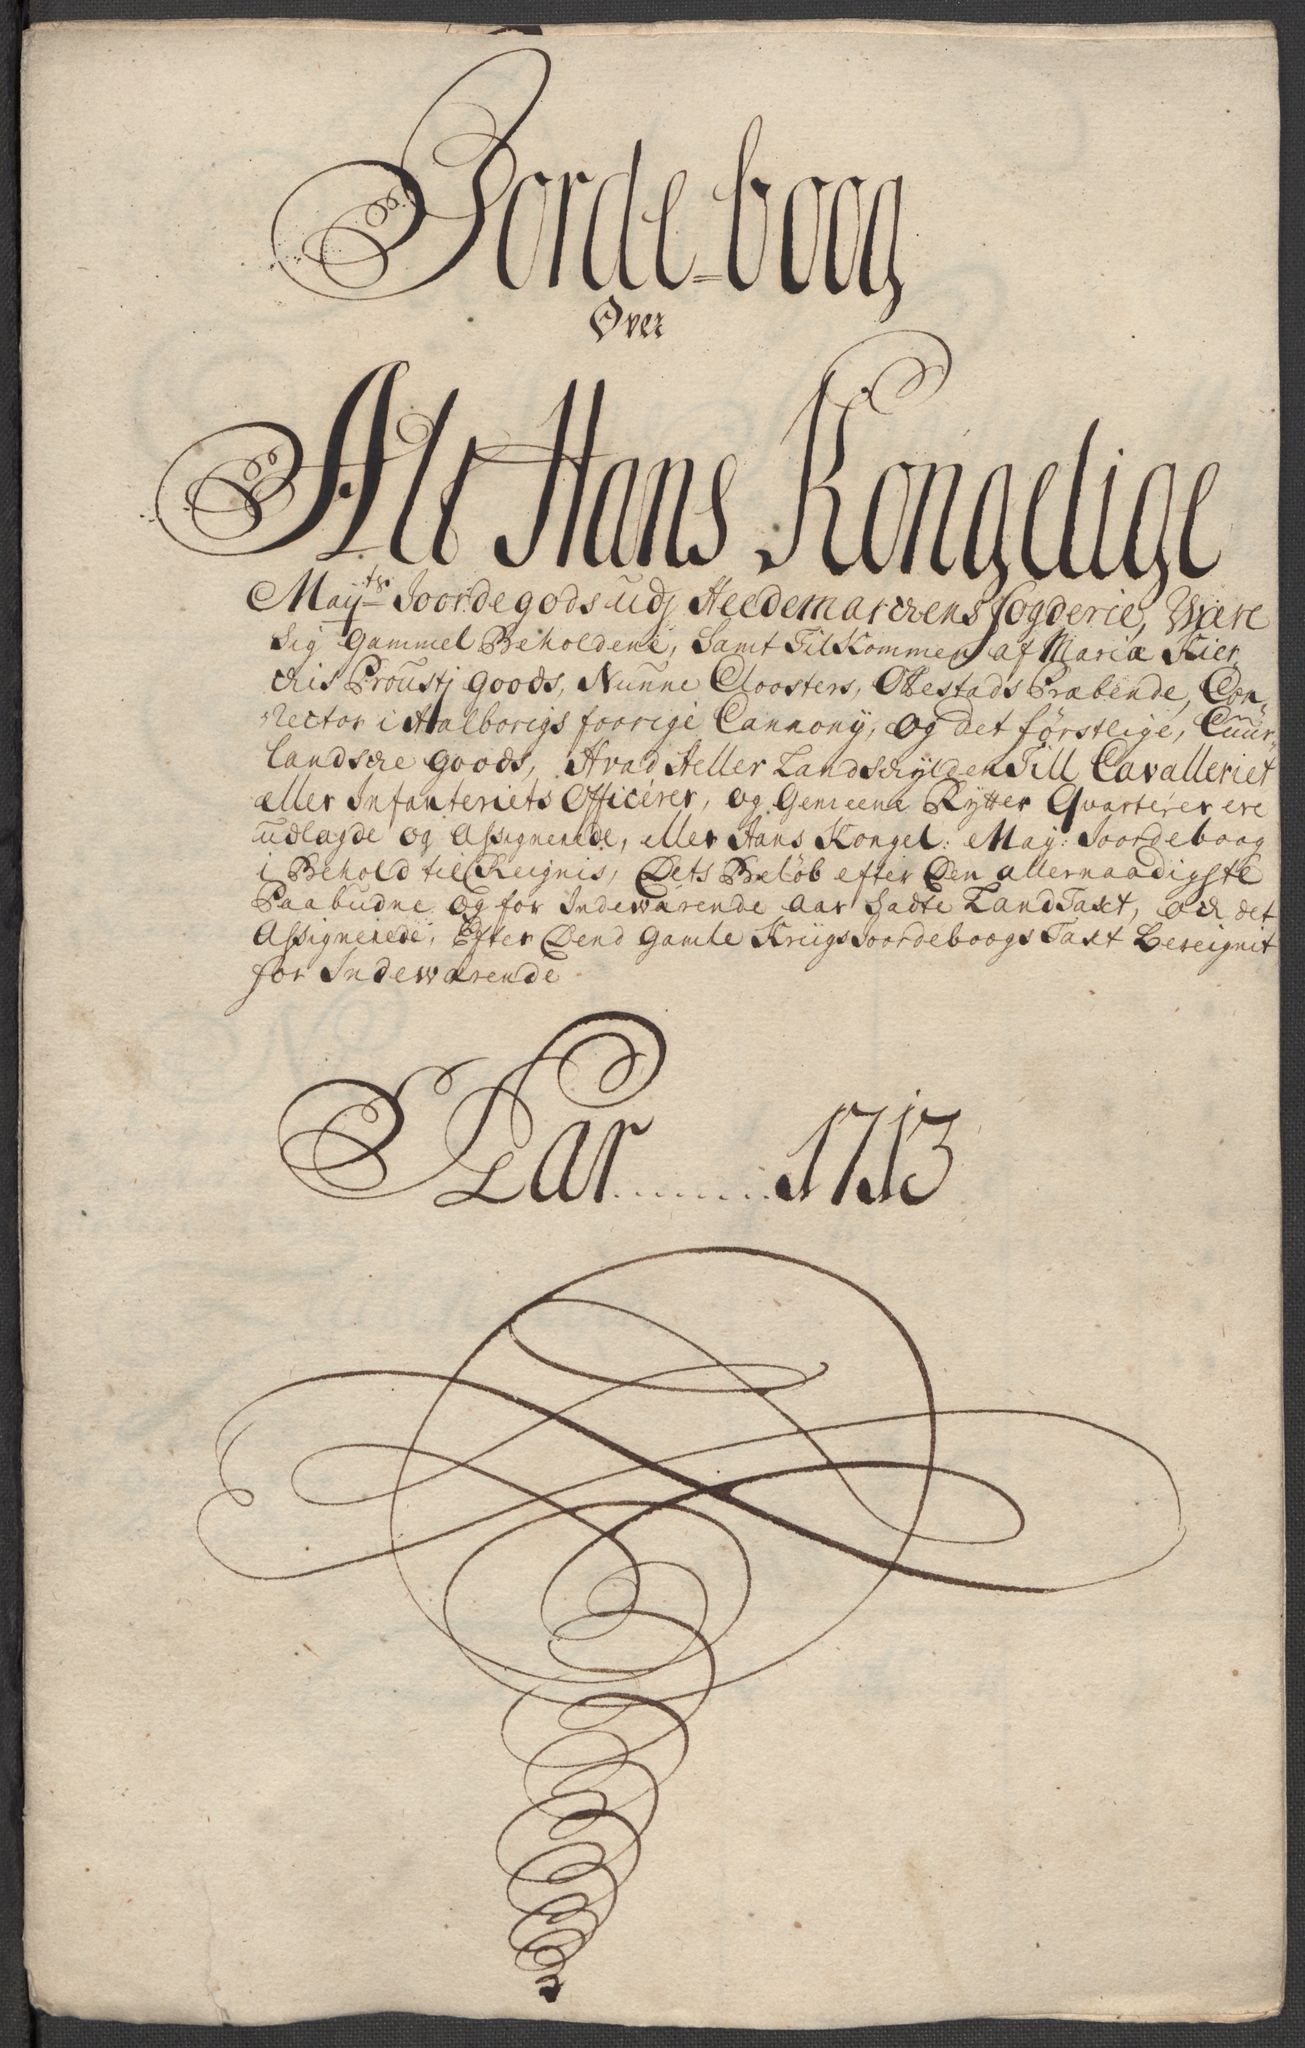 Jorde-boog
Over
Alt Hans Kongelige
Mayts Joordegods udj Heedemarchens fogderie, Være
sig Gammel Beholdene, Samt Tilkommen af Mariæ Kier
chis Proustj goods, Nunne Cloosters, Præbende, Con-
rector i Aalborigs foorige Cannonj, og det førstlige, Cuur-
landsche goods, Hvad Heller Landschylden Till Cavalleriet
eller Infanteriets Officerer, og Gemeene Rytter Quarterer ere
udlagde og Assignerede, eller Hans Kongel: May: Joordeboog
i Behold til Reignis, Dets Beløb efter Den allernaadigste
Paabudne og for Indeværende aar Sadte LandTaxt, och det
Assignerede, Efter Dend Gamle Kriigs Joordeboogs Taxt Bereignit
for Indewærende
Aar ........ 1713